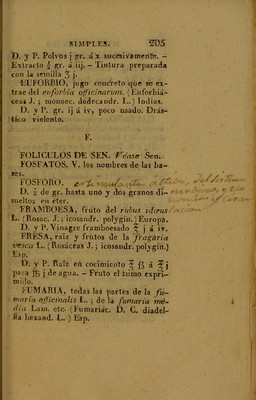 SIMPLES. 205
D. y P. Polvos j gr. á x sucesivamente. –
Extracto ⅛ gr. á iij. – Tintura preparada
con la semilla ʒ j.
EUFORBIO, jugo concreto que se ex-
trae del euforbia officinarum. (Euforbiá-
ceas J. ; monoec. dodecandr. L.) Indias.
D. y P. gr. ij á iv, poco usado. Drás-
tico violento.
F.
FOLICULOS DE SEN. Véase Sen.
FOSFATOS. V. los nombres de las ba-
ses.
FOSFORO. estimulante
D. de gr. hasta uno y dos granos di-
sueltos en éter.
FRAMBOESA, fruto del rubus idæus
L. (Rosac. J. ; icosandr. polygin. Europa.
D. y P. Vinagre framboesado ℥ j á iv.
FRESA, raiz y frutos de la fragaria
vesca L. (Rosáceas J. ; icosandr. polygin.)
Esp.
D. y P. Raiz en cocimiento ℥ ß á ℥ j
para ℔ j de agua. – Fruto el zumo expri-
mido.
FUMARIA, todas las partes de la fu-
maria officinalis L. ; de la fumaria me-
dia Lam. etc. (Fumariác. D. C. diadel-
fia hexand. L.) Esp.